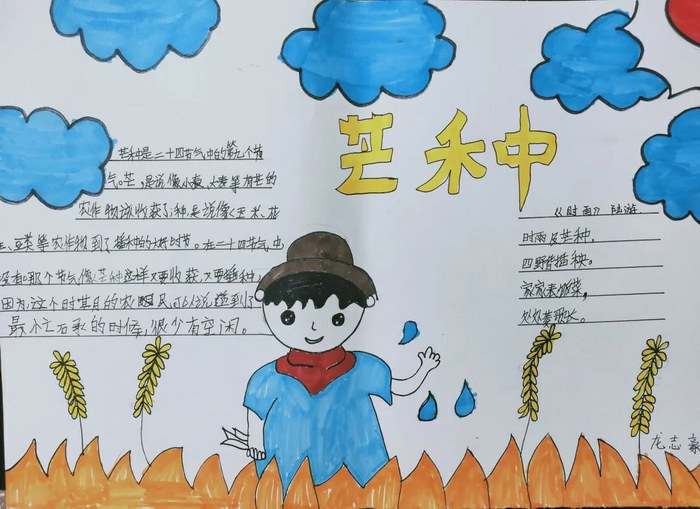 芒种
芒种是二十四节气中的第九个节
气。芒,是说像小麦、大麦等有芒的
农作物该收获了;种是说像玉米、花
生、豆菜等农作物到了播种的大好时节。在二十四节气中
没有那个节气像芒种这样又要收获,又要播种,
因为,这个时节的农
最忙碌的时候,很少有空闲。
《时雨》 陆游
时雨及芒种,
四野皆插秧。
家家麦饭美,
处处菱歌长。
龙志豪